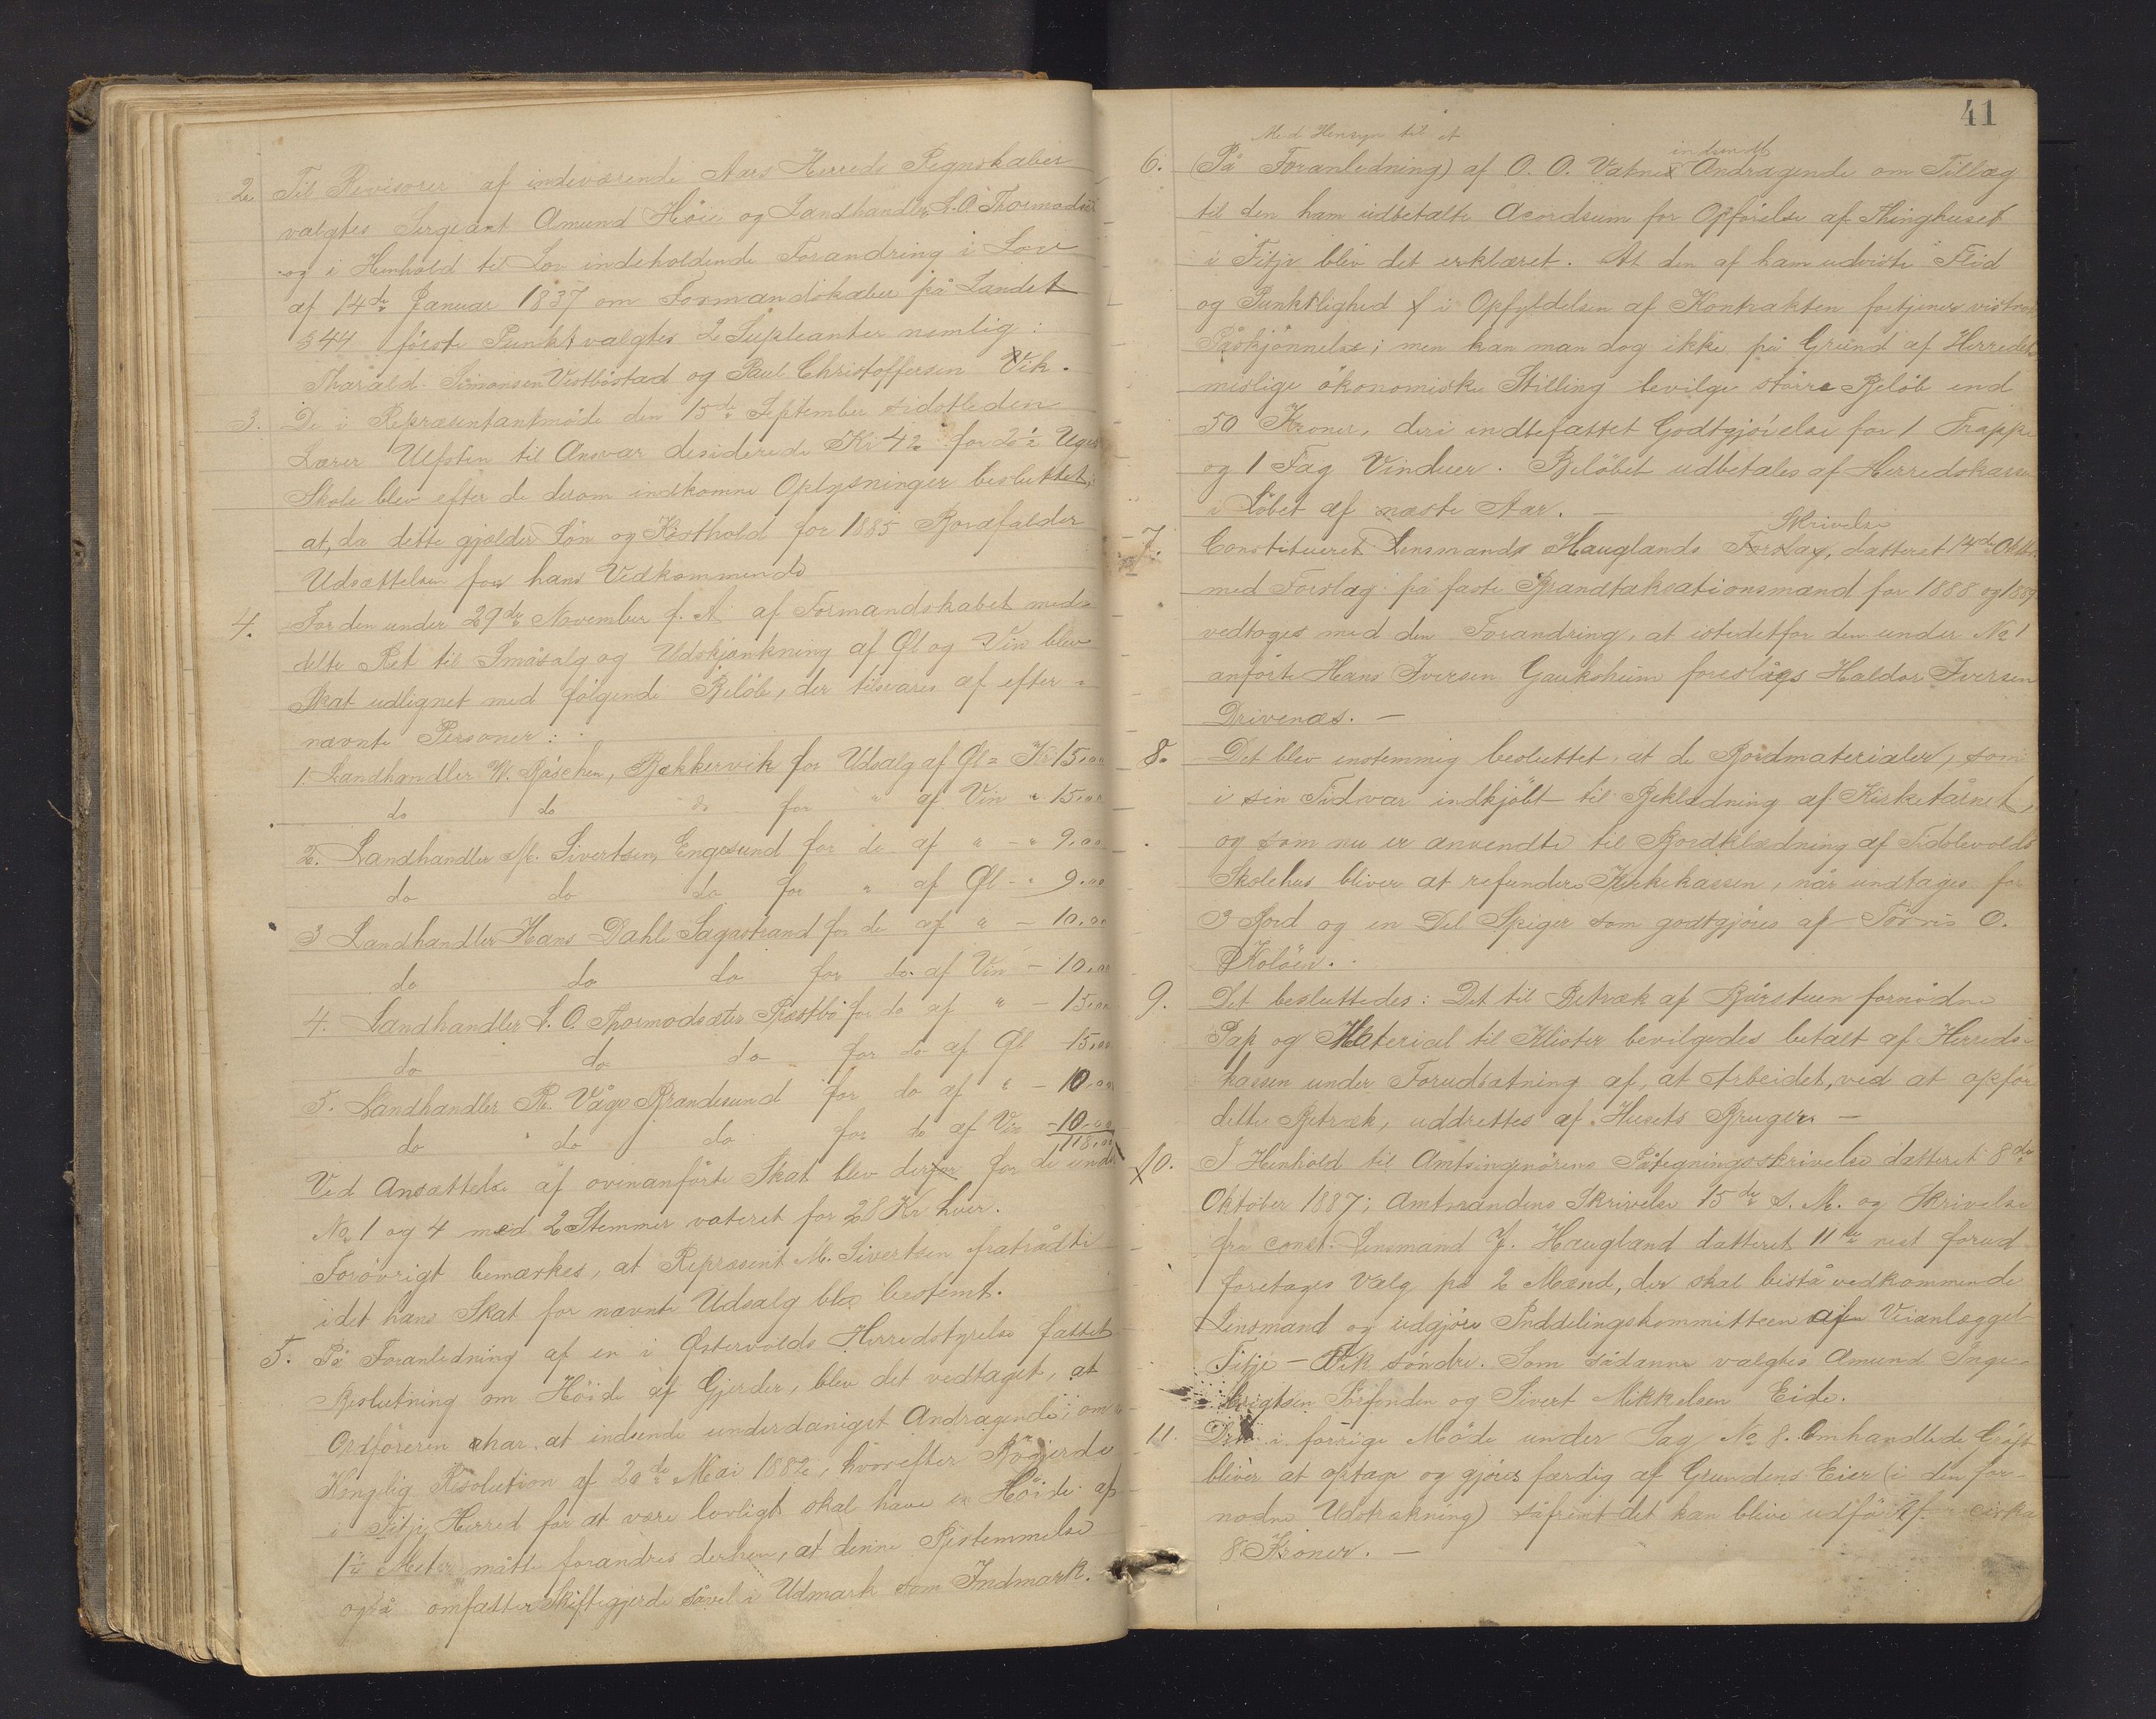 2. Til Revisorer af indeværende Aars Herreds Regnskaber
valgtes Sergeant Amund Höie og Landhandler L. O. Thormodsæter
og i Henhold til Lov indeholdende Forandring i Lov
af 14de Januar 1837 om Formandskaber på Landet
§ 44 förste Punkt valgtes 2 Supleanter nemlig:
Tharald Simonsen Vestböstad og Paul Christoffersen Vik.
3. De i Repræsentantmöde den 15de September sidstleden
Lærer Ulfsten til Ansvar desiderede Kr 42 for Ugers
Skole blev efter de derom indkomne Oplysninger besluttet,
at, da dette gjelder Lön og Kosthold for 1885 Bortfalder
Udsættelsen for hans Vedkommende
4. For den under 29de November f. A. af Formandskabet med-
delte Ret til Småsalg og Udskjænkning af Øl og Vin blev
Skat udlignet med følgende Beløb, der tilsvares af efter-
nævnte Personer:
1. Landhandler W. Räschen, Bekkervik for Udsalg af Øl = Kr 15,00
do do do for " af Vin " 15,00
2. Landhandler M. Sivertsen, Engesund for do af " - " 9,00
do do do for " af Øl - " 9,00
3 Landhandler Hans Dahle Sagastrand for do af " - 10,00
do do do for do. af Vin - 10,00
4. Landhandler L. O. Thormodsæter Præstbö for do af " - 15,00
do do do for do af Øl 15,00
5. Landhandler R. Våge Brandesund for do af " - 10,00
do do do for do af Vin - 10,00
118,00
Ved Ansættelse af ovenanförte Skat blev derfor for de under
No 1 og 4 med 2 Stemmer voteret for 28 Kr hver.
Forövrigt bemærkes, at Repræsent M. Sivertsen fratrådte
idet hans Skat for nævnte Udsalg blev bestemt.
5. På Foranledning af en i Østervolds Herredstyrelse fattet
Beslutning om Höide af Gjerder, blev det vedtaget, at
Ordföreren har at indsende underdanigst Andragende, om
Kongelig Resolution af 20de Mai 1882, hvorefter
i Fitje Herred for at være lovligt skal have en Höide af
1 Meter måtte forandres derhen, at denne Bestemmelse
også omfatter Skiftegjerde såvel i Udmark som Indmark.
41
Med Hensyn til et
indsendt
6. (På Foranledning) af O. O. Vatne Andragende om Tillæg
til den ham udbetalte Acordsum for Opförelse af Thinghuset
i Fitje blev det erklæret. At den af ham udviste Flid
og Punktlighed i Opfyldelsen af Kontrakten fortjener vistnok
Påskjönnelse; men kan man dog ikke på Grund af Herredets
mislige ökonomiske Stilling bevilge större Belöb end
50 Kroner, deri indbefattet Godtgjörelse for 1 Trappe
og 1 Fag Vinduer. Belöbet udbetales af Herredskassen
i Löbet af næste Aar. —
Skrivelse
7. Constitueret Lensmands Hauglands Forslag, datteret 14de Oktbr
med Forslag på faste Brandtaksationsmænd for 1888 og 1889
vedtoges med den Forandring, at istedetfor den under No 1
anförte Hans Iversen Gauksheim foreslåes Haldor Iversen
Drivenæs. —
8. Det blev enstemmig besluttet, at de Bordmaterialer, som
i sin Tid var indkjöbt til Beklædning af Kirketårnet,
og som nu er anvendte til Bordklædning af Fidslevolds
Skolehus bliver at refundere Kirkekassen, når undtages for
3 Bord og en Del Spiger som godtgjöres af Torris O.
Koløen.
9. Det besluttedes: Det til Betræk af Bårstuen fornödne
Pap og Material til Klister bevilgedes betalt af Herreds-
kassen under Forudsætning af, at Arbeidet, ved at opföre
dette Betræk, uddrettes af Husets Bruger. —
10. I Henhold til Amtsingeniörens Påtegningsskrivelse datteret 8de
Oktober 1887; Amtmandens Skrivelse 15de s. M. og Skrivelse
fra const. Lensmand J. Haugland datteret 11te nest forud
foretages Valg på 2 Mænd, der skal bistå vedkommende
Lensmand og udgjöre Inddelingskommitteen af Veianlægget
Fitje - Vik söndre. Som sådanne valgtes Amund Inge-
brigtsen Sörfonden og Sivert Mikkelsen Eide.
11. Den i forrige Möde under Sag No 8. Omhandlede Gröft
bliver at optage og gjöres færdig af Grundens Eier (i den for-
nødne Udstrækning) såfremt det kan blive udfört f. cirka
8 Kroner. —